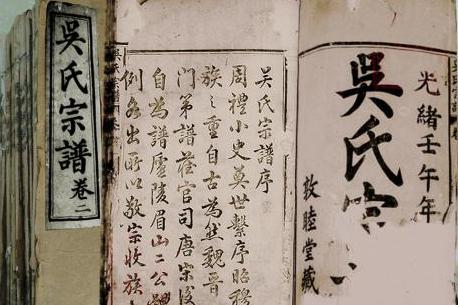 光緒壬午年
吳氏宗
敦睦堂藏
吳氏宗譜序
周禮小史奠世繫序昭穆
族之重自古為然魏晉
門第譜官司唐宋後
自為譜廬陵眉山二公譜
例出所以敬宗收族
吳氏宗譜
吳氏宗譜 卷二